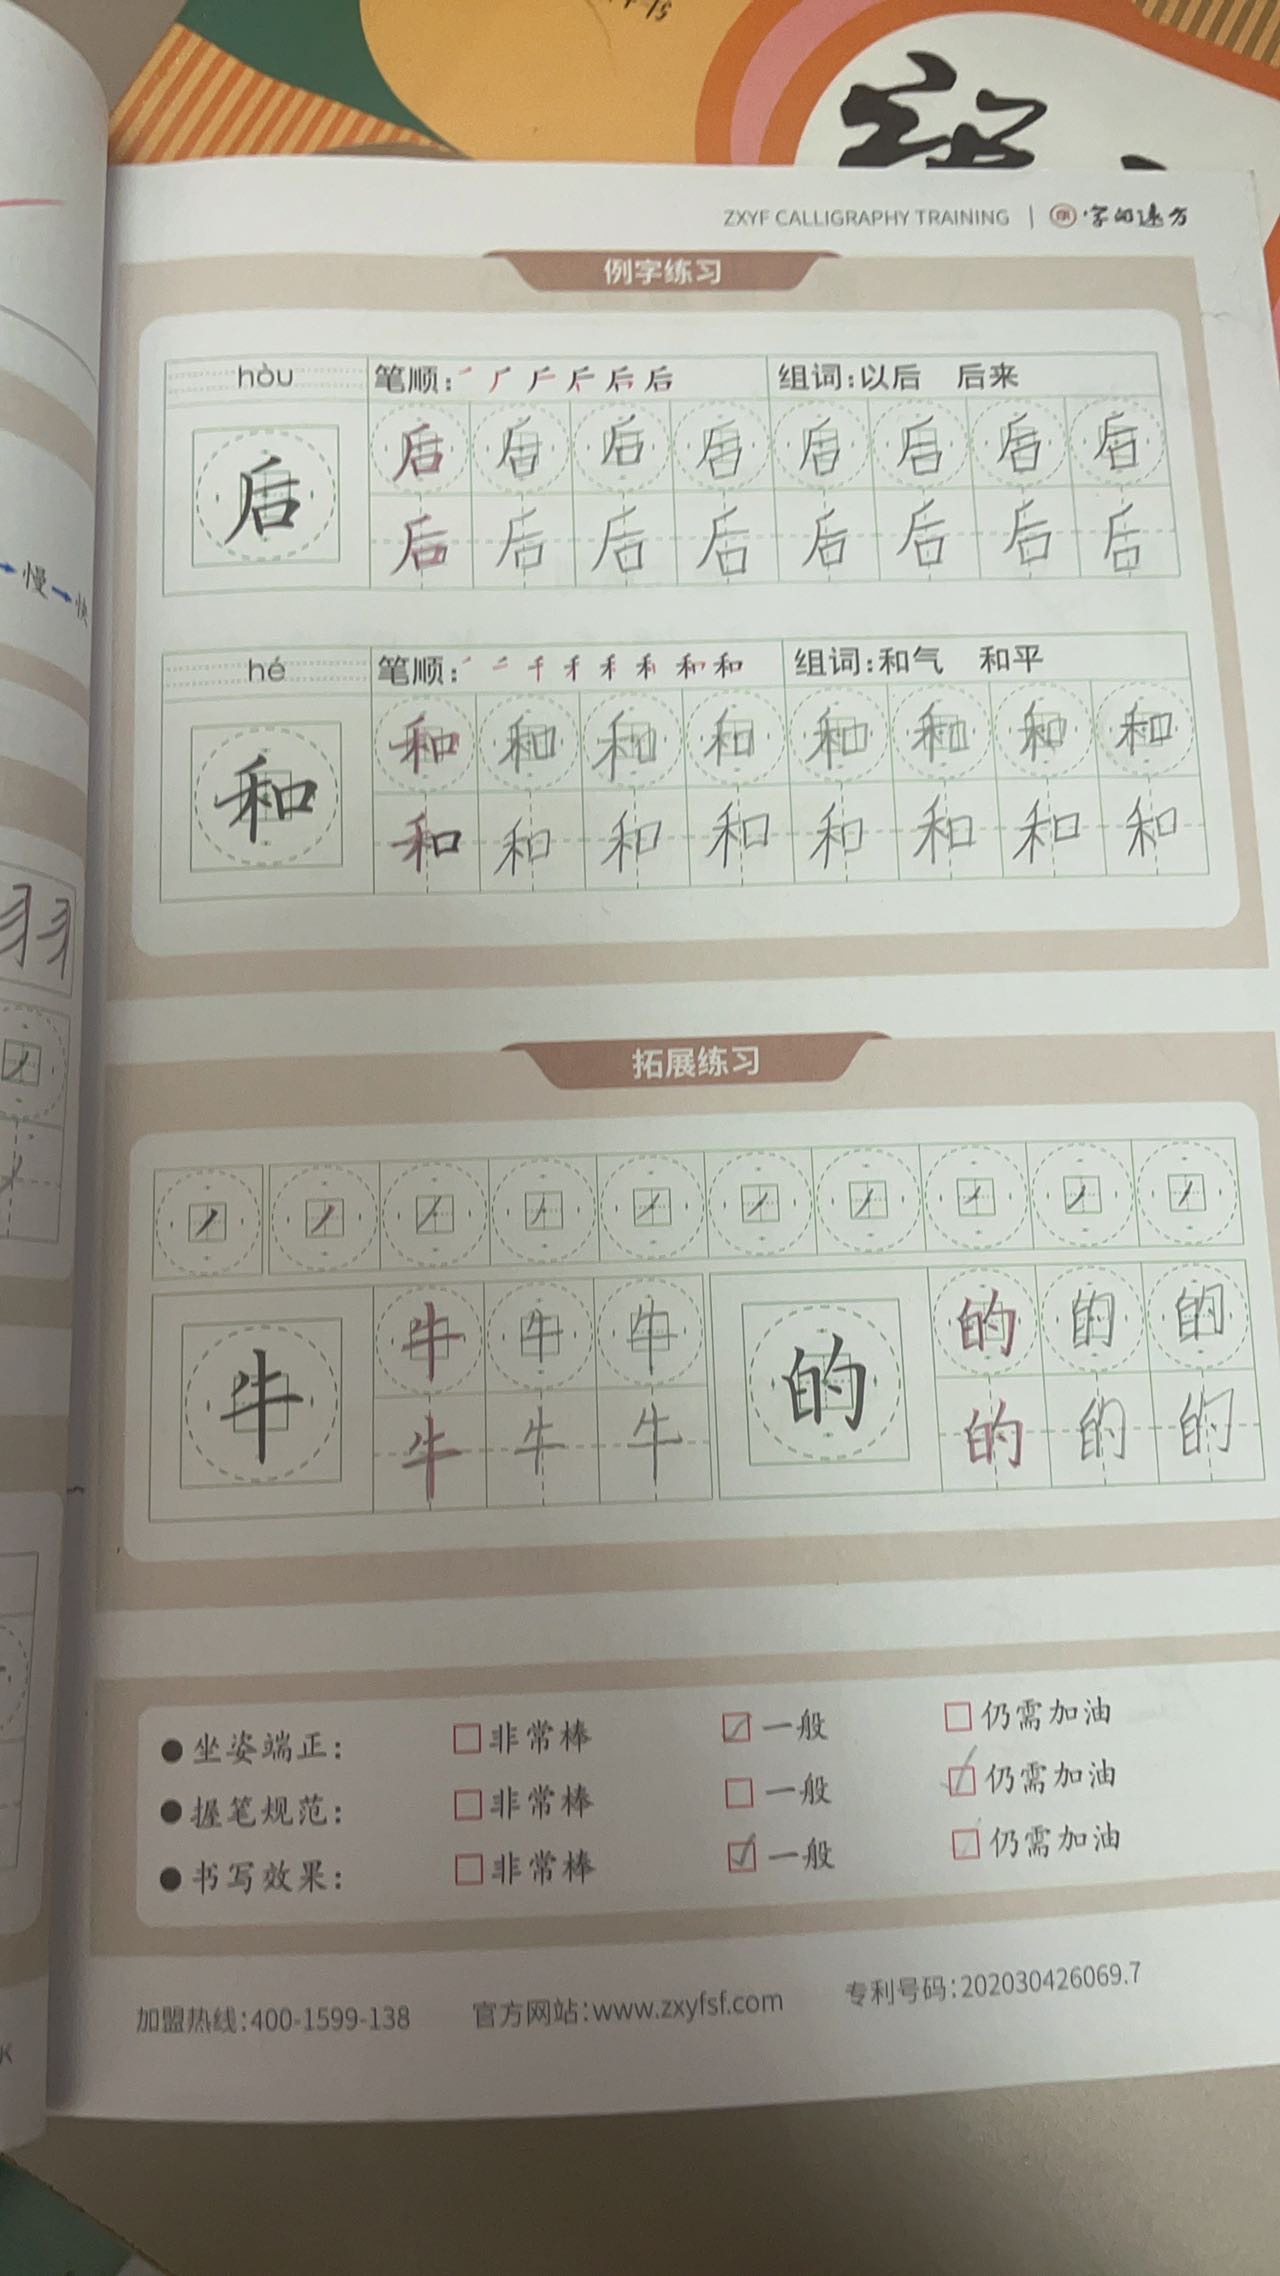 ZXYF CALLIGRAPHY TRAINING | 字的远方
例字练习
hòu 笔顺: 后 组词:以后 后来
后 后 后 后 后 后 后 后 后
后 后 后 后 后 后 后 后
hé 笔顺: 二 千 禾 和 组词:和气 和平
和 和 和 和 和 和 和 和 和
和 和 和 和 和 和 和 和
慢→快
拓展练习
牛 牛 牛 牛 的 的 的 的
牛 牛 牛 的 的 的
坐姿端正: 非常棒 一般 仍需加油
握笔规范: 非常棒 一般 仍需加油
书写效果: 非常棒 一般 仍需加油
加盟热线:400-1599-138 官方网站:www.zxyfsf.com 专利号码:202030426069.7